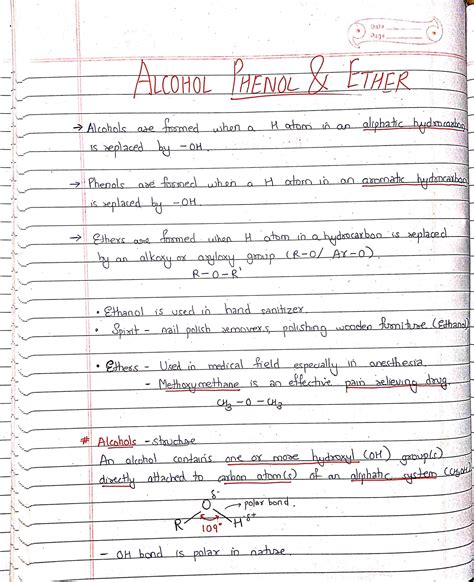 Date
Page
ALCOHOL PHENOL & ETHER
→ Alcohols are formed when a H atom in an aliphatic hydrocarbon
is replaced by -OH.
→ Phenols are formed when a H atom in an aromatic hydrocarbon
is replaced by -OH.
→ Ethers are formed when H atom in a hydrocarbon is replaced
by an alkoxy or aryloxy group (R-O/ Ar-O).
R-O-R'
• Ethanol is used in hand sanitizer.
• Spirit - nail polish removers, polishing wooden furniture (Ethanol)
• Ethers - Used in medical field especially in anesthesia.
- Methoxymethane is an effective pain relieving drug.
CH3-O-CH3
# Alcohols - structure
An alcohol contains one or more hydroxyl (OH) group(s)
directly attached to carbon atom(s) of an aliphatic system (CH3OH
δ-
O → polar bond.
R 109° H δ+
- OH bond is polar in nature.